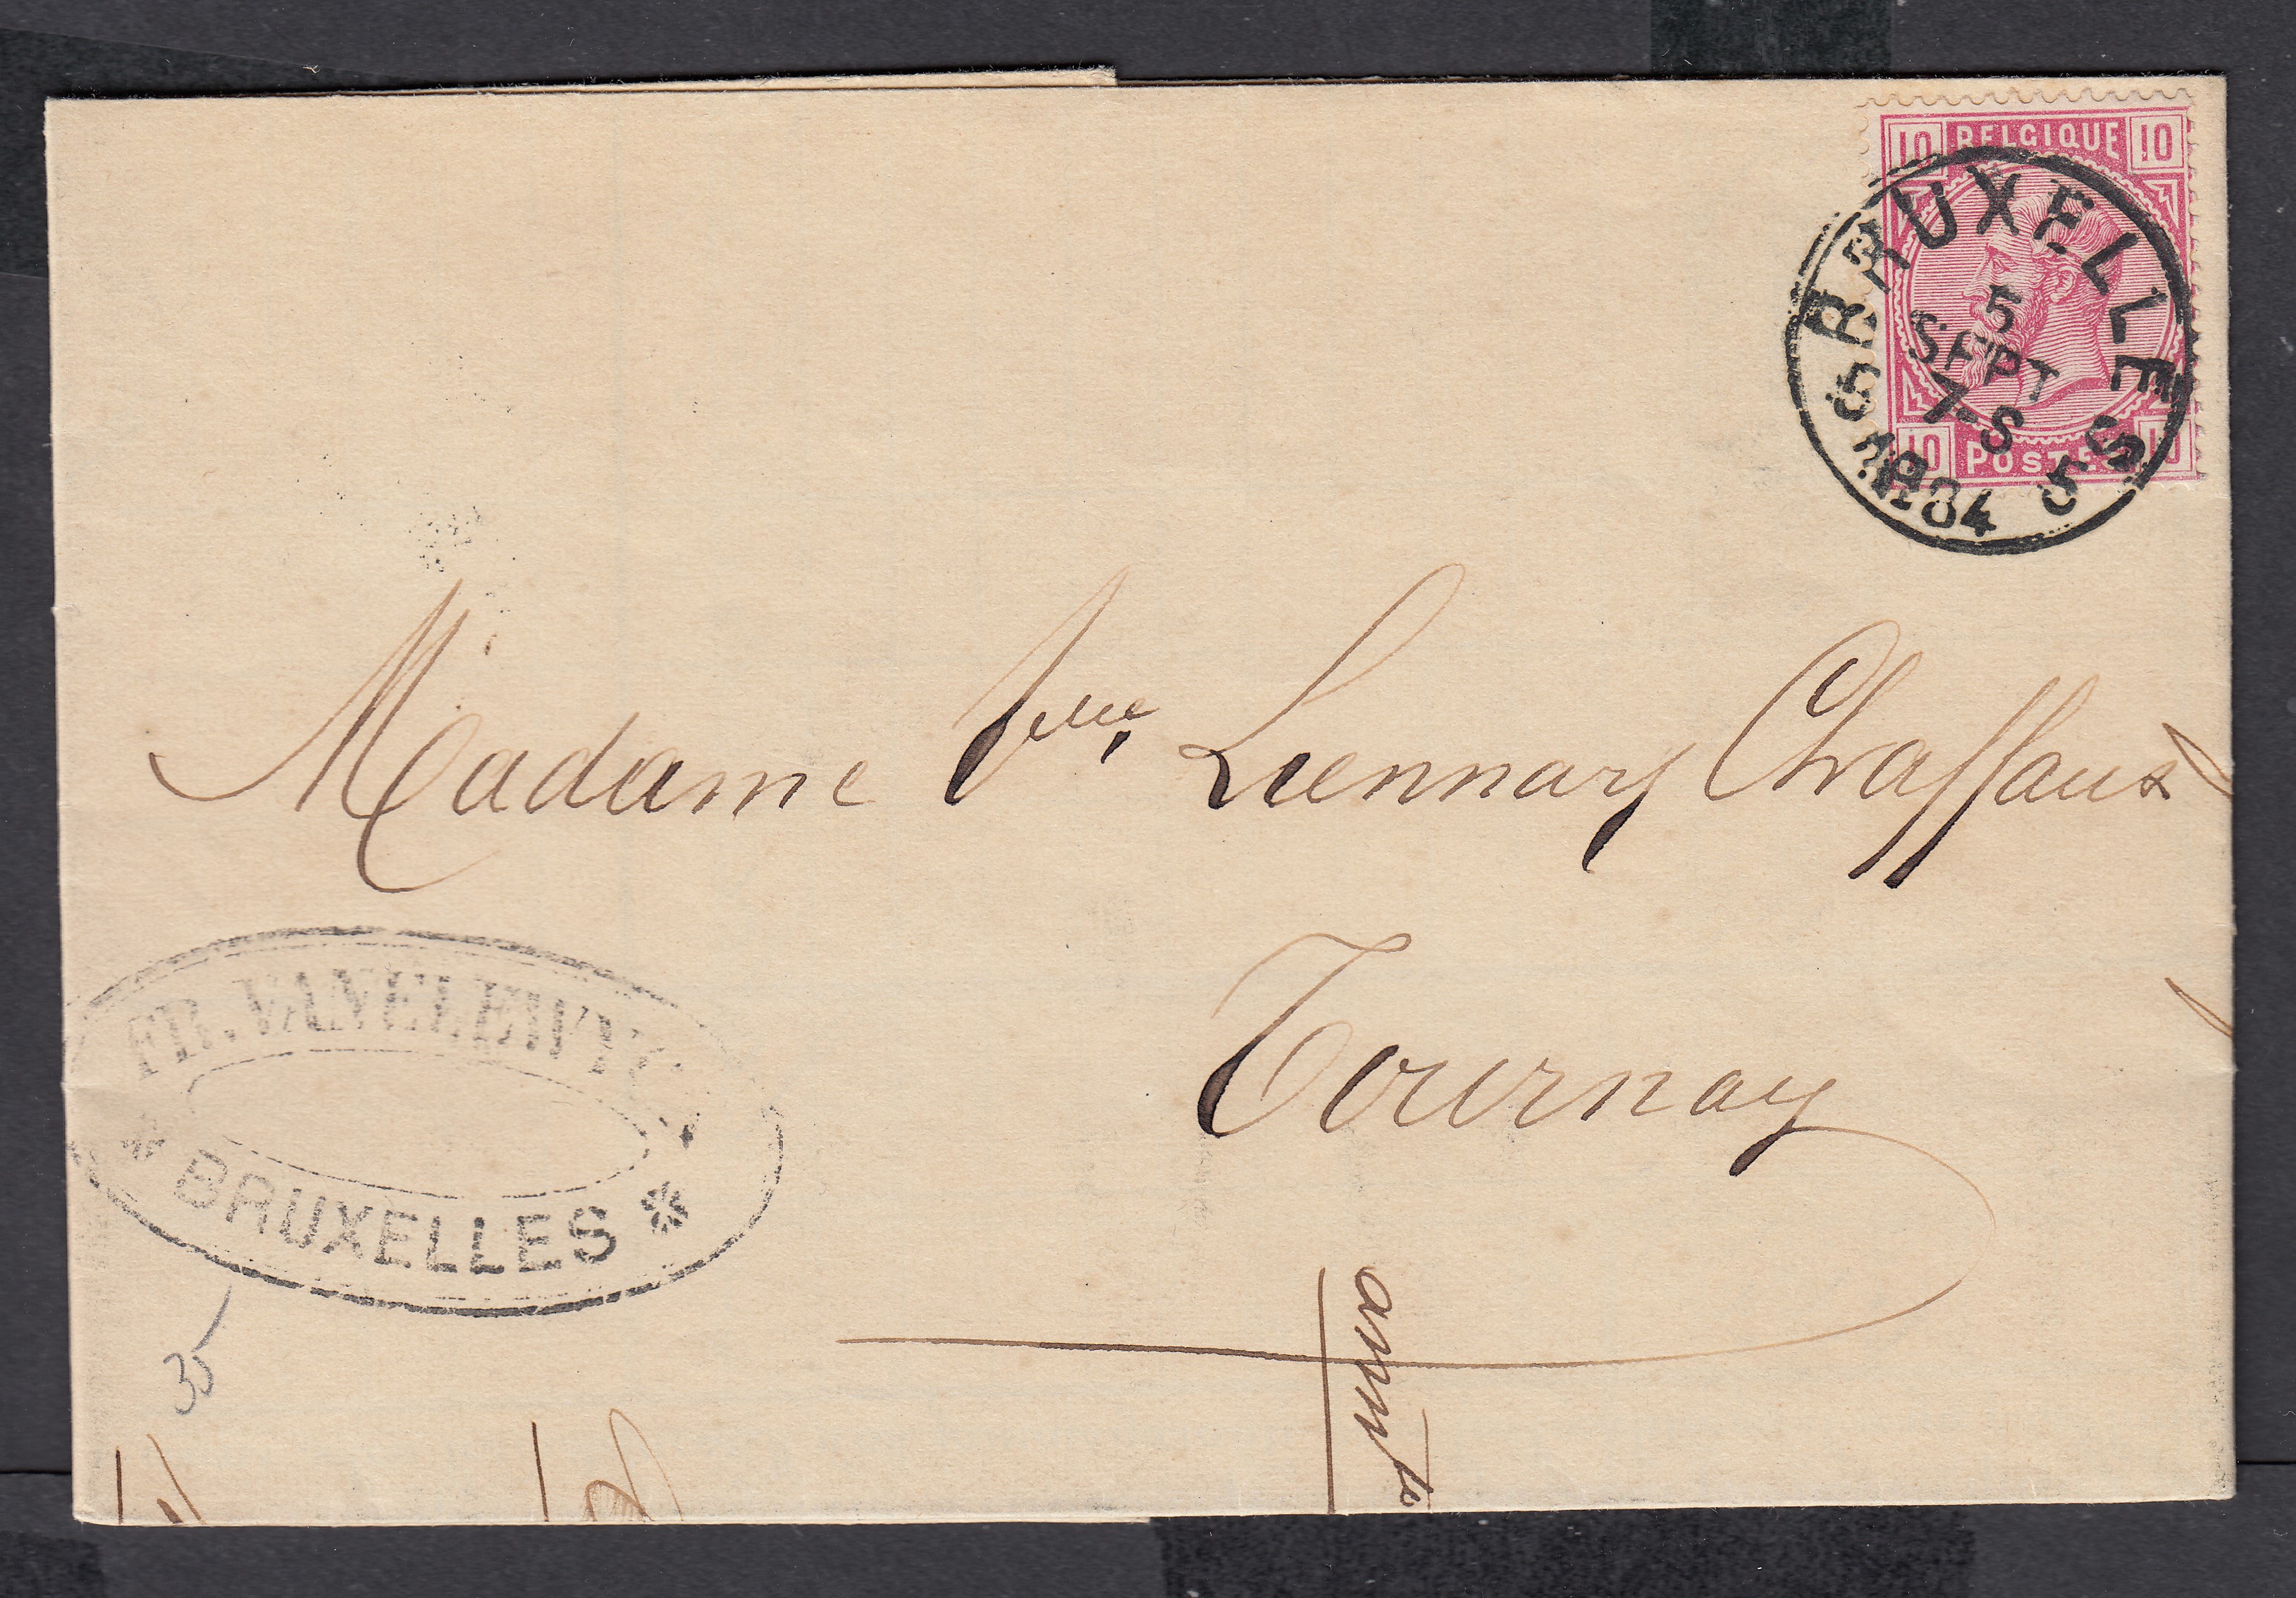 10 BELGIQUE 10
10 POSTES 10
BRUXELLES
5
SEPT
7-S
5 1884 5
Madame Vve Liennart Chaffaux
Tournay
FR.
BRUXELLES
35